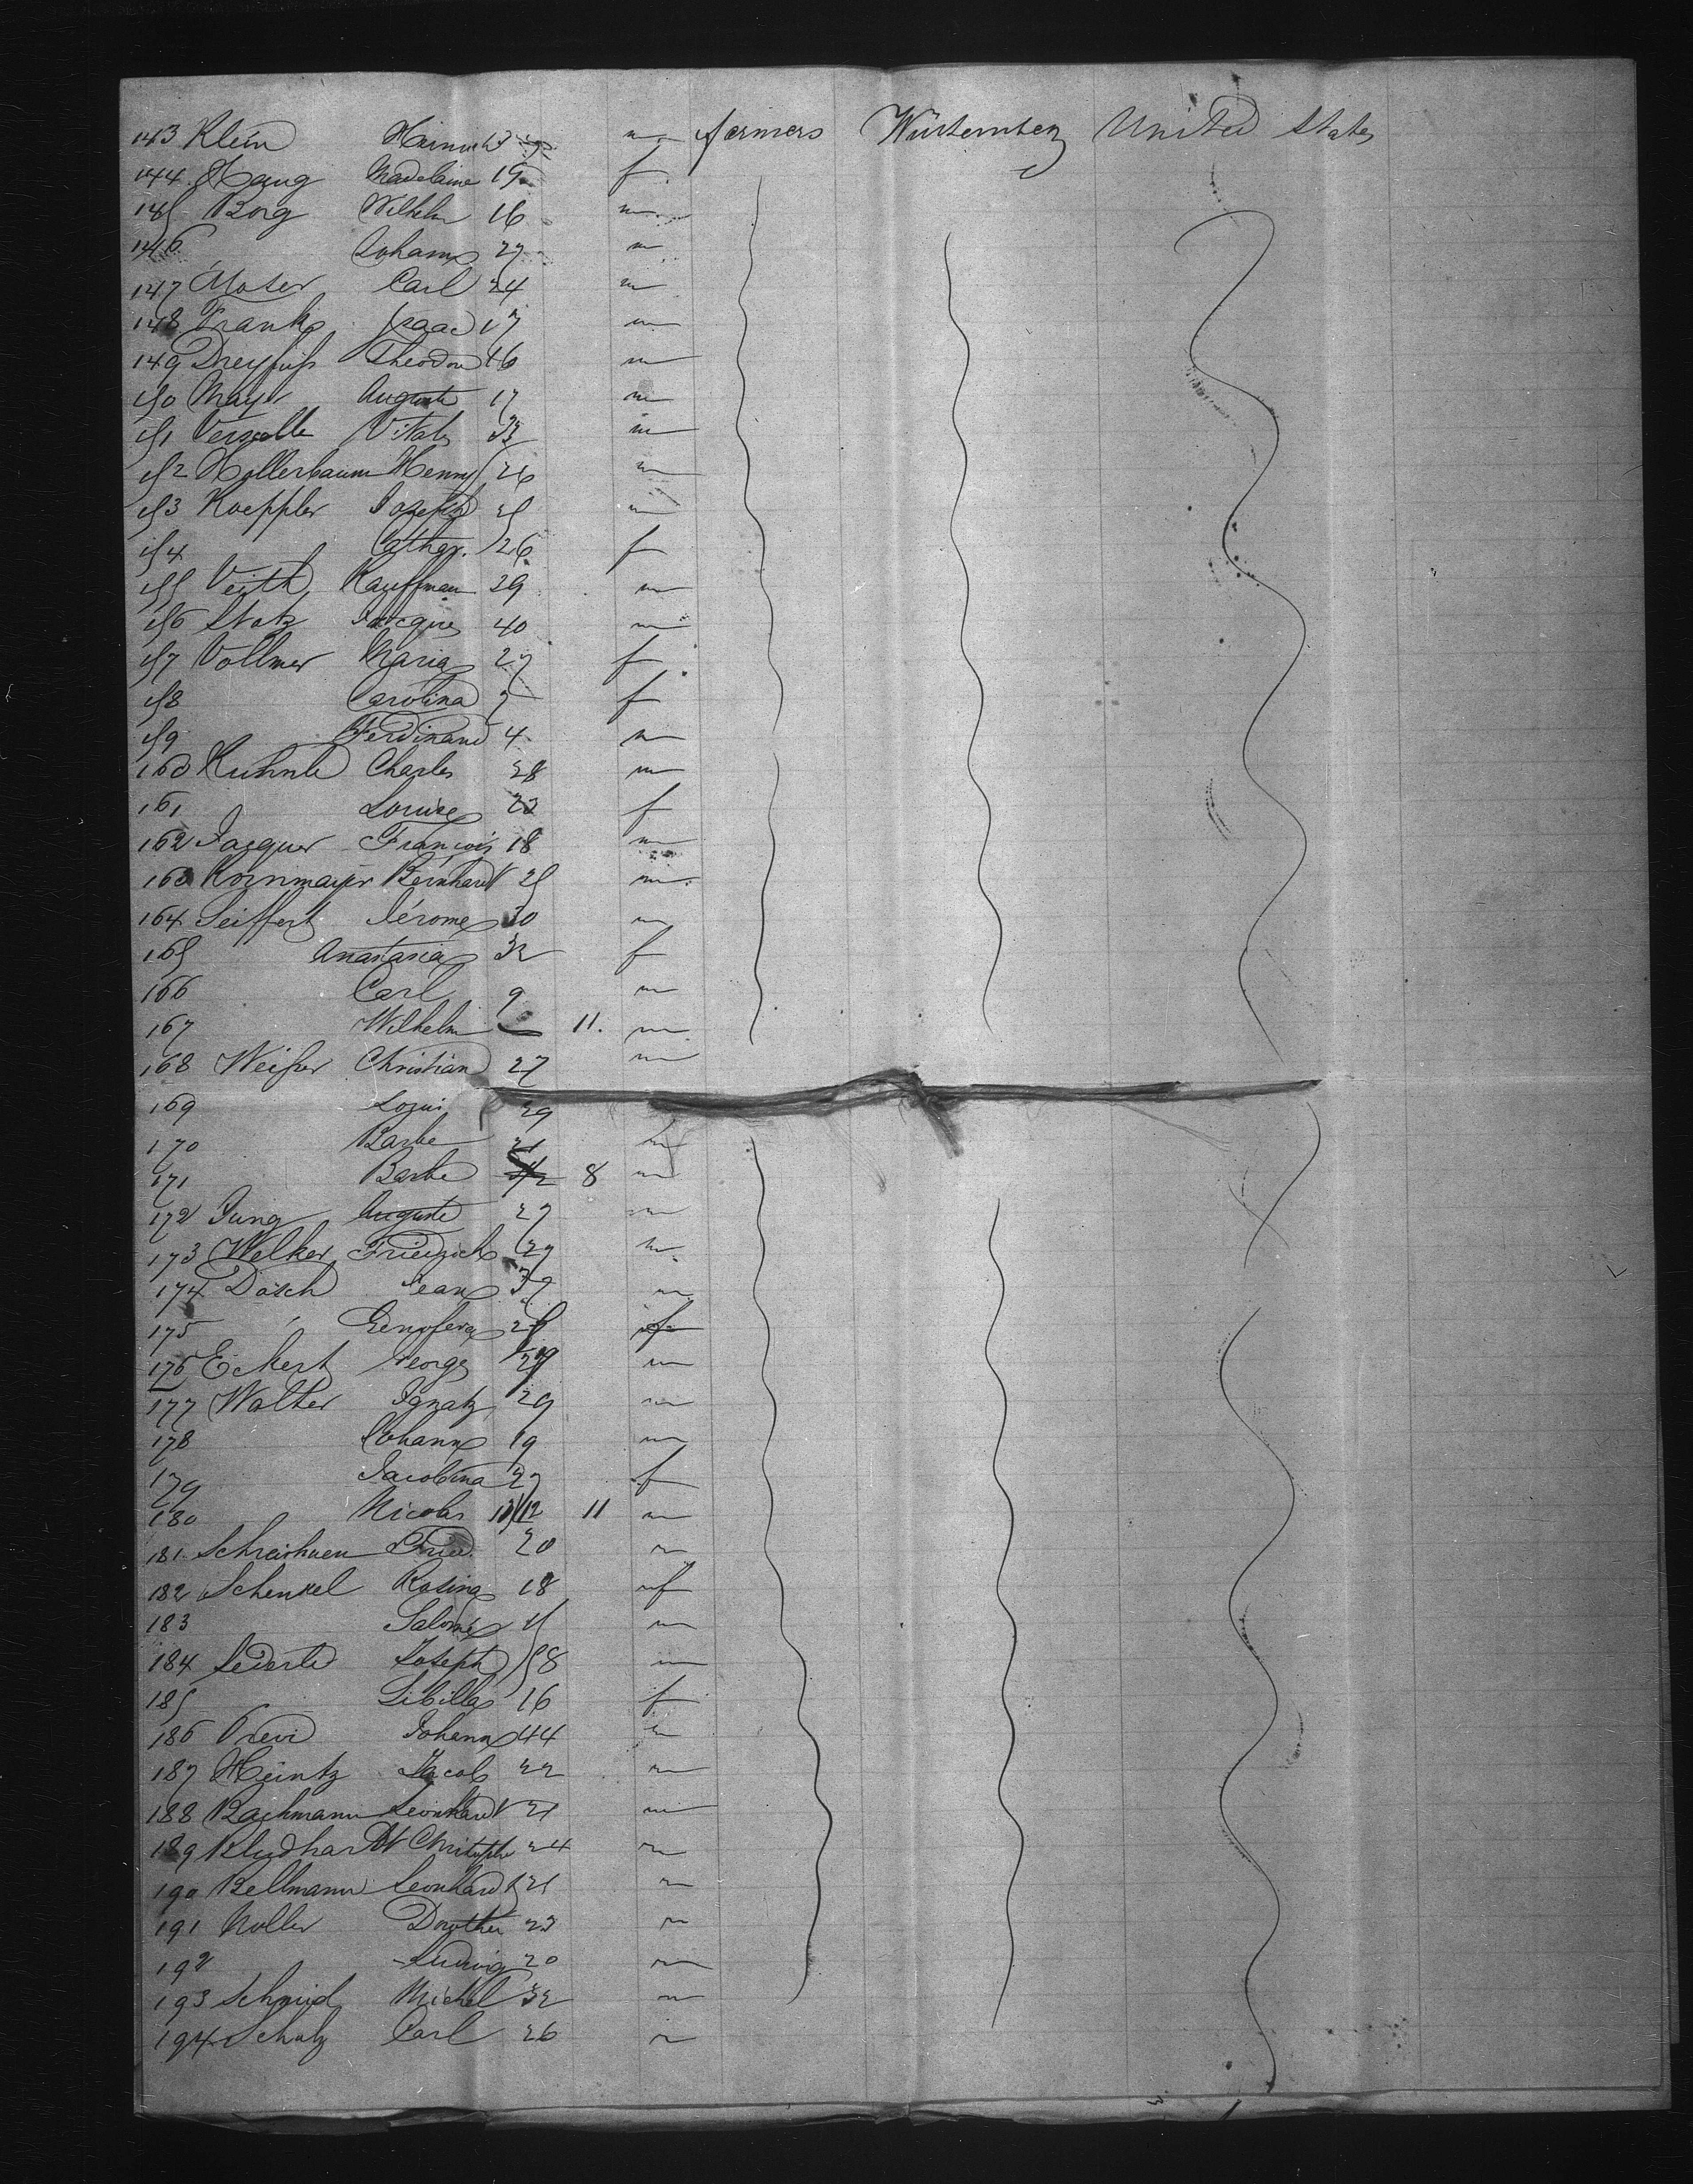 143 Klein Heinrich m farmers Würtemberg United States
144 Haug Madelaine 19 f
145 Borg Wilhelm 16 m
146 Johann 27 m
147 Moser Carl 24 m
148 Frank Isaac 17 m
149 Dreyfuss Theodor 16 m
150 Mayr Auguste 17 m
151 Vitals 33 m
152 Hollerbaum Henry 26 m
153 Koeppler Joseph 25 m
154 Cathar. 26 f
155 Veith Kauffman 29 m
156 Stotz Jacques 40 m
157 Vollmer Maria 27 f
158 Carolina 7 f
159 Ferdinand 4 m
160 Kuhnle Charles 28 m
161 Louise 23 f
162 Jacquer François 18 m
163 Kornmayer Bernhardt 25 m
164 Seiffert Jérome 30 m
165 Anastasia 32 f
166 Carl 9 m
167 Wilhelm 11. m
168 Weisser Christian 27 m
169 29
170 Barbe 21 m
171 Barbe 8 m
172 Jung Auguste 27 m
173 Welker Friedrich 27 m
174 Dosch Jean 37 m
175 Genofeva f
176 Eckert George 29 m
177 Walter Ignatz 29 m
178 Johann 19 m
179 Jacobina 27 f
180 Nicolas 11/12 11 m
181 Fried. 20 m
182 Schenkel Rosina 18 f
183 Salome m
184 Lederle Joseph 58 m
185 Sibilla 16 f
186 Johann 44 m
187 Heintz Jacob 22 m
188 Bachmann Leonhardt 21 m
189 Christophe 24 m
190 Bellmann Leonhardt 21 m
191 Noller Dorothea 23 m
192 Ludwig 20 m
193 Schmid Michel 32 m
194 Schulz Carl 26 m